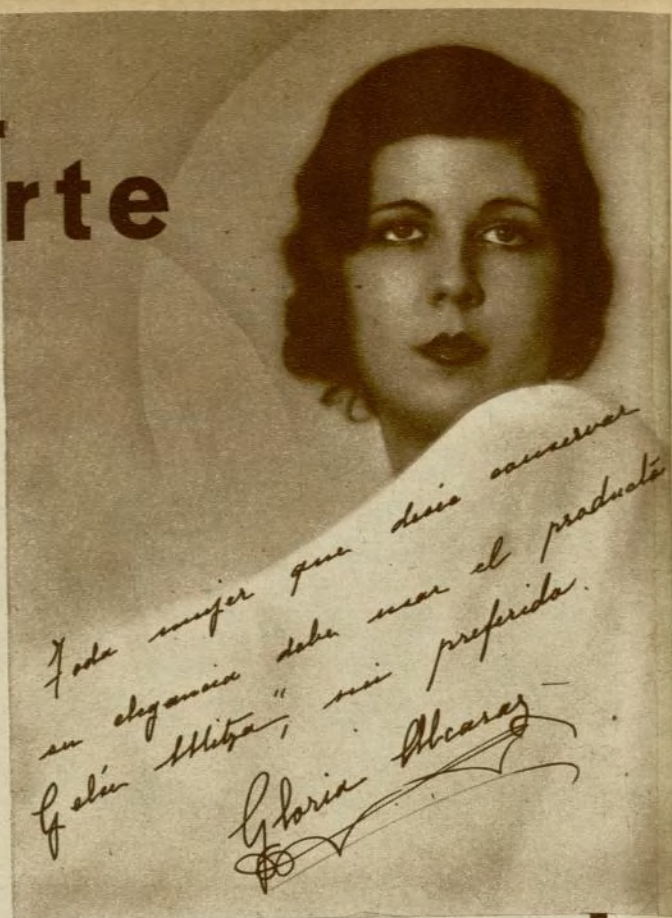 rte
Toda mujer que desee conservar
su elegancia debe usar el producto
Gelée Mitza", mi preferido.
Gloria Alcaraz